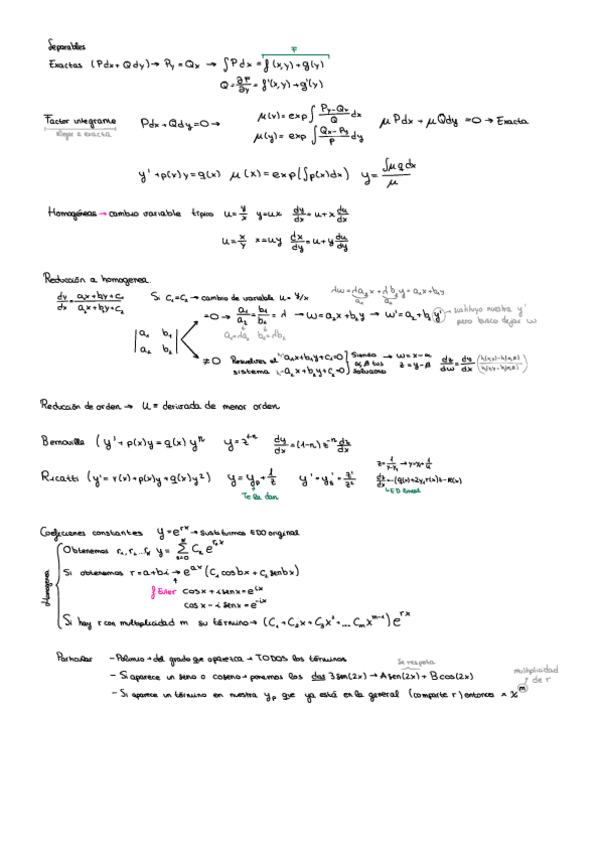 Separables
F
Exactas (Pdx + Qdy) → Py = Qx → ∫Pdx = f(x,y) + g(y)
Q = ∂F/∂y = f'(x,y) + g'(y)
Factor integrante Pdx + Qdy = 0 → μ(x) = exp ∫ (Py - Qx)/Q dx μPdx + μQdy = 0 → Exacta
llegar a exacta μ(y) = exp ∫ (Qx - Py)/P dy
y' + p(x)y = q(x) μ(x) = exp(∫p(x)dx) y = ∫μqdx / μ
Homogéneas → cambio variable típico u = y/x y = ux dy/dx = u + x du/dx
u = x/y x = uy dx/dy = u + y du/dy
Reducción a homogenea.
dy/dx = a₁x + b₁y + c₁ / a₂x + b₂y + c₂ Si C₁ = C₂ → cambio de variable u = y/x
= 0 → a₁/a₂ = b₁/b₂ = λ → w = a₂x + b₂y → w' = a₂ + b₂ y' sustituyo nuestra y' pero busco dejar w
|a₁ b₁
a₂ b₂| a₁ = λa₂ b₁ = λb₂
≠ 0 Resuelves el sistema Siendo α, β tus soluciones → w = x - α
z = y - β
Reducción de orden → u = derivada de menor orden
Bernouille (y' + p(x)y = q(x) yⁿ y = z dy/dx = (1-n) z⁻ⁿ dz/dx
Ricatti (y' = r(x) + p(x)y + q(x)y²) y = yp + 1/z
Te la dan
ED lineal
Coeficientes constantes y = e^rx → Sustituimos EDO original
Homogenea
Obtenemos r₁, r₂ ... y = Σ e
Si obtenemos r = a + bi → e^ax (C₁ cos bx + C₂ sen bx)
Euler cos x + i sen x = e^ix
cos x - i sen x = e^-ix
Si hay r con multiplicidad m su término → (C₁ + C₂x + C₃x² + ... Cm x^m-1) e^rx
Particular - Polinomio → del grado que aparezca → TODOS los términos
Se respeta
- Si aparece un seno o coseno → ponemos los dos 3 sen(2x) → A sen(2x) + B cos(2x)
multiplicidad de r
- Si aparece un término en nuestra yp que ya está en la general (comparte r) entonces × x^m